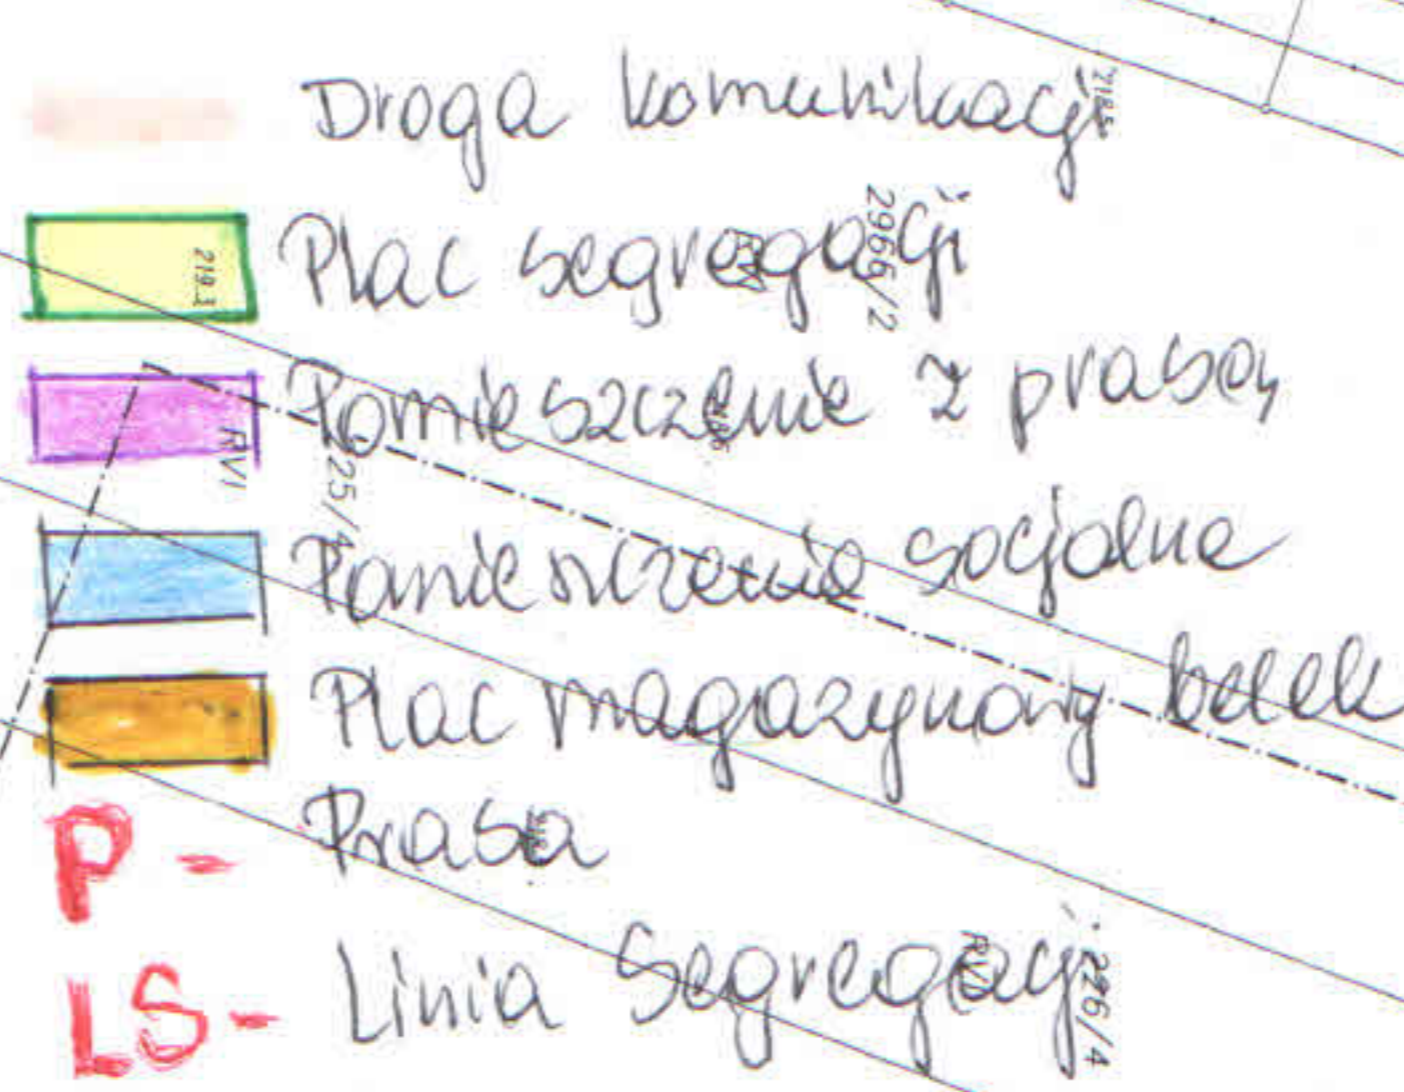 Droga komunikacji
218.5
Plac segregacji
2966/2
219.3
Pomieszczenie z prasą
RVI
25/4
Pomieszczenie socjalne
Plac magazynowy belek
P - Prasa
LS - Linia Segregacji
RVI
226/4